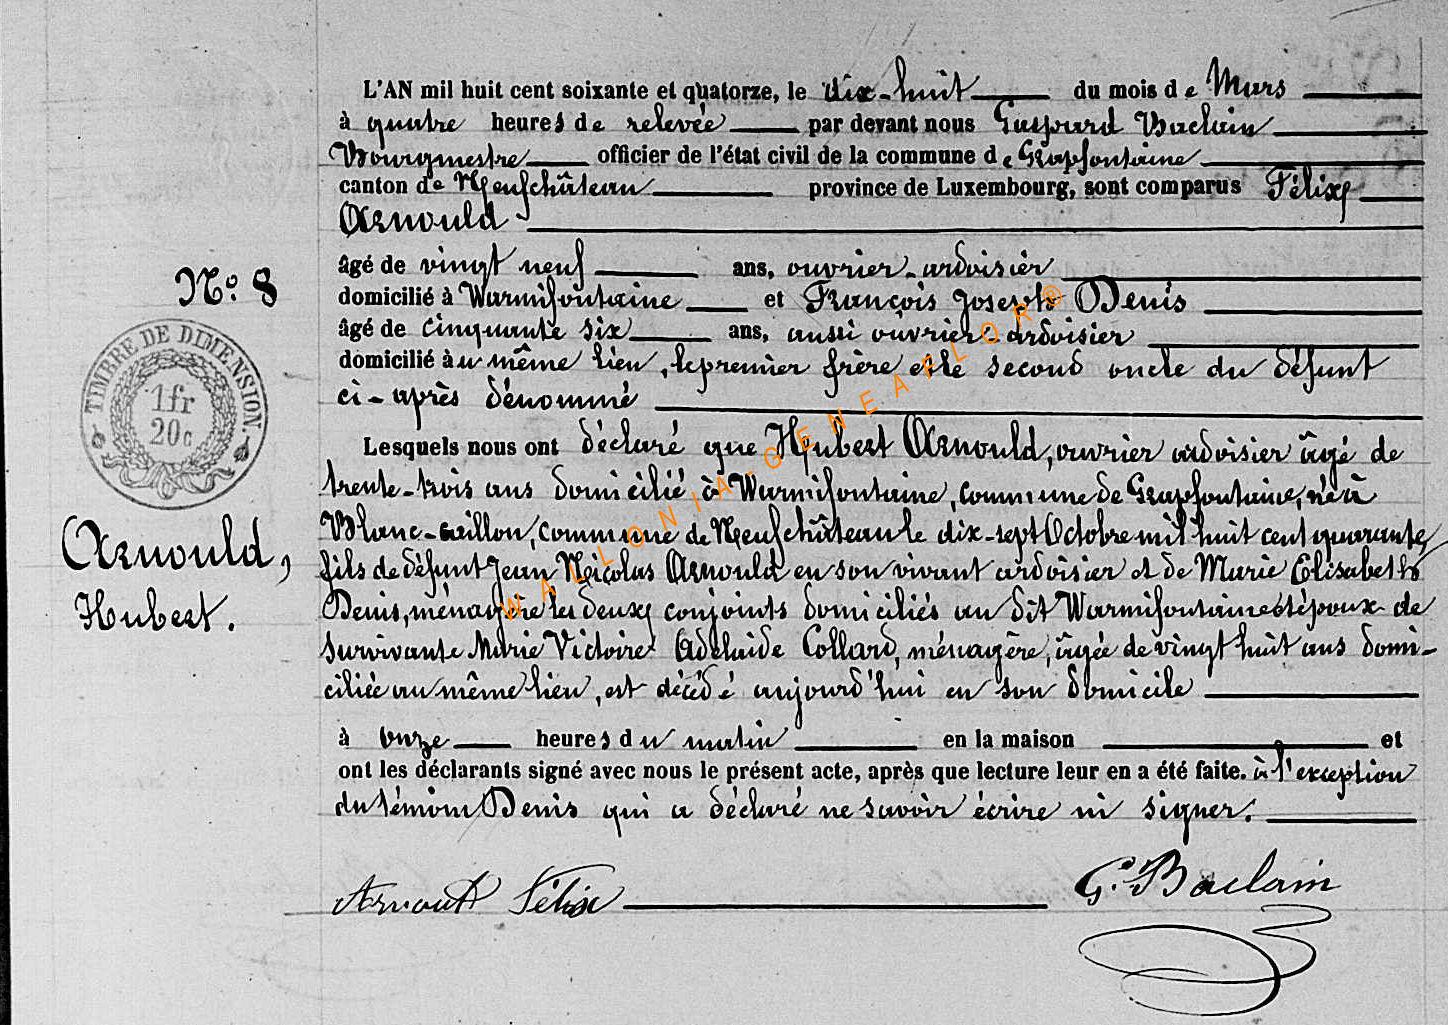 L'AN mil huit cent soixante et quatorze, le dix-huit du mois de Mars
à quatre heures de relevée par devant nous Gaspard Baclain
Bourgmestre officier de l'état civil de la commune de Grapfontaine
canton de Neufchâteau province de Luxembourg, sont comparus Félix
Arnould
âgé de vingt neuf ans, ouvrier-ardoisier
domicilié à Warmifontaine et François Joseph Denis
âgé de cinquante six ans, aussi ouvrier ardoisier
domicilié au même lieu, le premier frère et le second oncle du défunt
ci-après dénommé
Lesquels nous ont déclaré que Hubert Arnould, ouvrier ardoisier âgé de
trente-trois ans domicilié à Warmifontaine, commune de Grapfontaine, né à
Blanc-caillou, commune de Neufchâteau le dix-sept Octobre mil huit cent quarante,
fils de défunt Jean Nicolas Arnould en son vivant ardoisier et de Marie Elisabeth
Denis, ménagère les deux conjoints domiciliés au dit Warmifontaine et époux de
survivante Marie Victoire Adelaïde Collard, ménagère, âgée de vingt huit ans domi-
ciliée au même lieu, est décédé aujourd'hui en son domicile
à onze heures du matin en la maison et
ont les déclarants signé avec nous le présent acte, après que lecture leur en a été faite. à l'exception
du témoin Denis qui a déclaré ne savoir écrire ni signer.
Arnould Félix
G. Baclain
No. 8
TIMBRE DE DIMENSION.
1fr
20c
Arnould,
Hubert.
WALLONIA-GENEAFLOR®